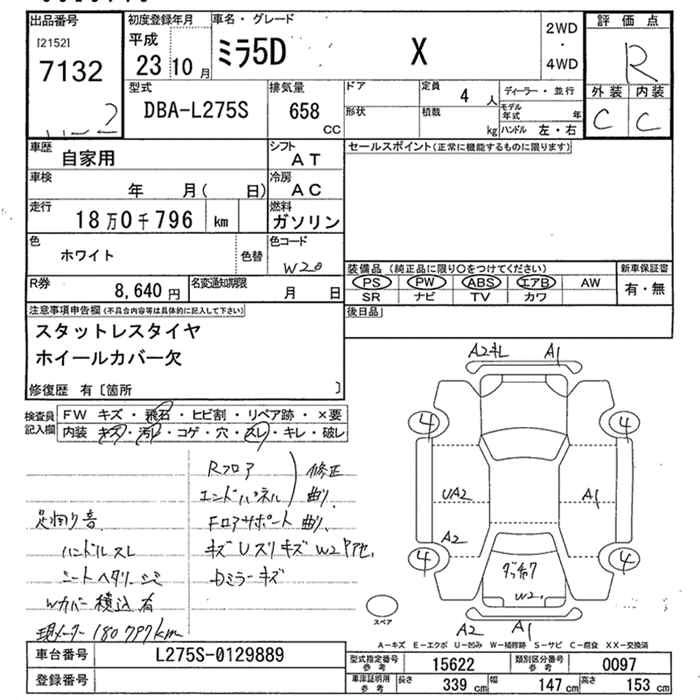 出品番号
[2152]
7132
初度登録年月
平成
23 10 月
車名・グレード
ミラ5D X
2WD
・
4WD
評価点
R
外装 内装
C C
型式
DBA-L275S
排気量
658
CC
ドア
形状
定員
4 人
積載
kg
ディーラー・並行
モデル年式 年
ハンドル 左・右
車歴
自家用
シフト
AT
車検
年 月( 日)
冷房
AC
走行
18万0千796 km
燃料
ガソリン
色
ホワイト
色替
色コード
W20
R券
8,640 円
名変通知期限
月 日
セールスポイント(正常に機能するものに限ります)
装備品 (純正品に限り○をつけてください)
PS PW ABS エアB AW
SR ナビ TV カワ
新車保証書
有・無
後日品
注意事項申告欄(不具合内容等は具体的に記入して下さい)
スタットレスタイヤ
ホイールカバー欠
修復歴 有〔箇所 〕
検査員記入欄
FW キズ・飛石・ヒビ割・リペア跡・×要
内装 キズ・汚レ・コゲ・穴・スレ・キレ・破レ
Rフロア
エンドパネル
修正
曲り
Fロアサポート 曲り、
足廻り音
ハンドルスレ
シートヘタリ シミ
Wカバー積込有
現メーター180797km
Dミラーキズ
A2 A1
4 4
UA2 A1
A2
4 4
W2
A2 A1
スペア
A-キズ E-エクボ U-凹み W-補修跡 S-サビ C-腐食 XX-交換済
車台番号
L275S-0129889
登録番号
型式指定番号参考
15622
類別区分番号参考
0097
車庫証明用参考
長さ 339 cm
幅 147 cm
高さ 153 cm